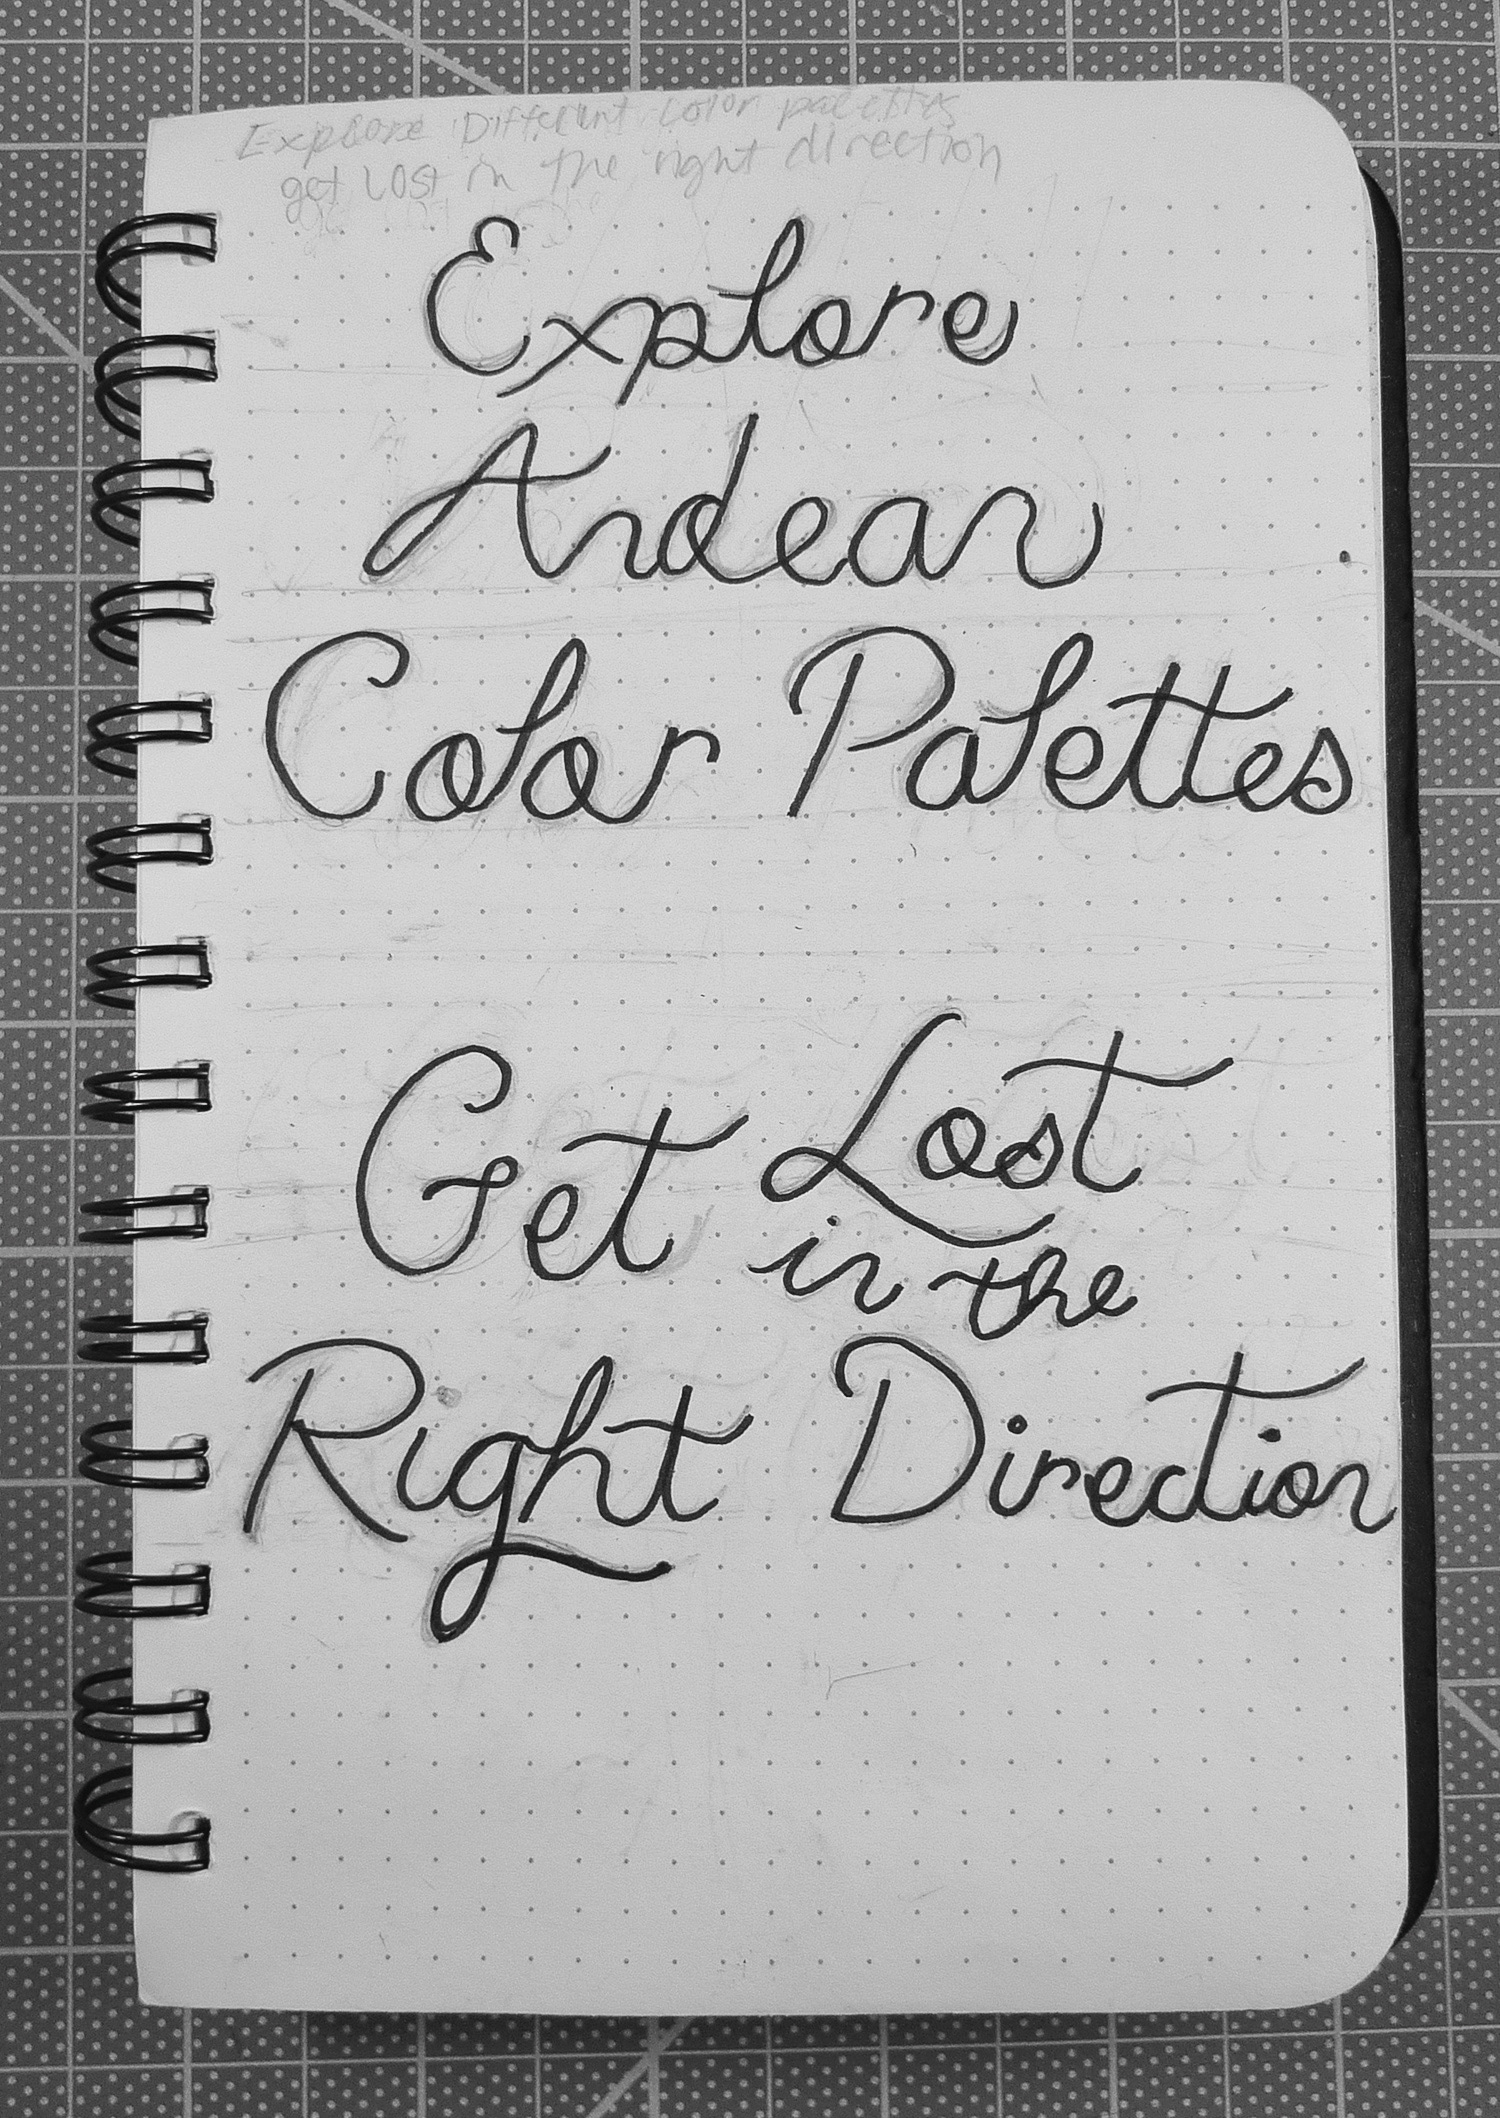 Explore Different Color palettes
get Lost in the right direction
Explore
Andean
Color Palettes
Get Lost
in the
Right Direction